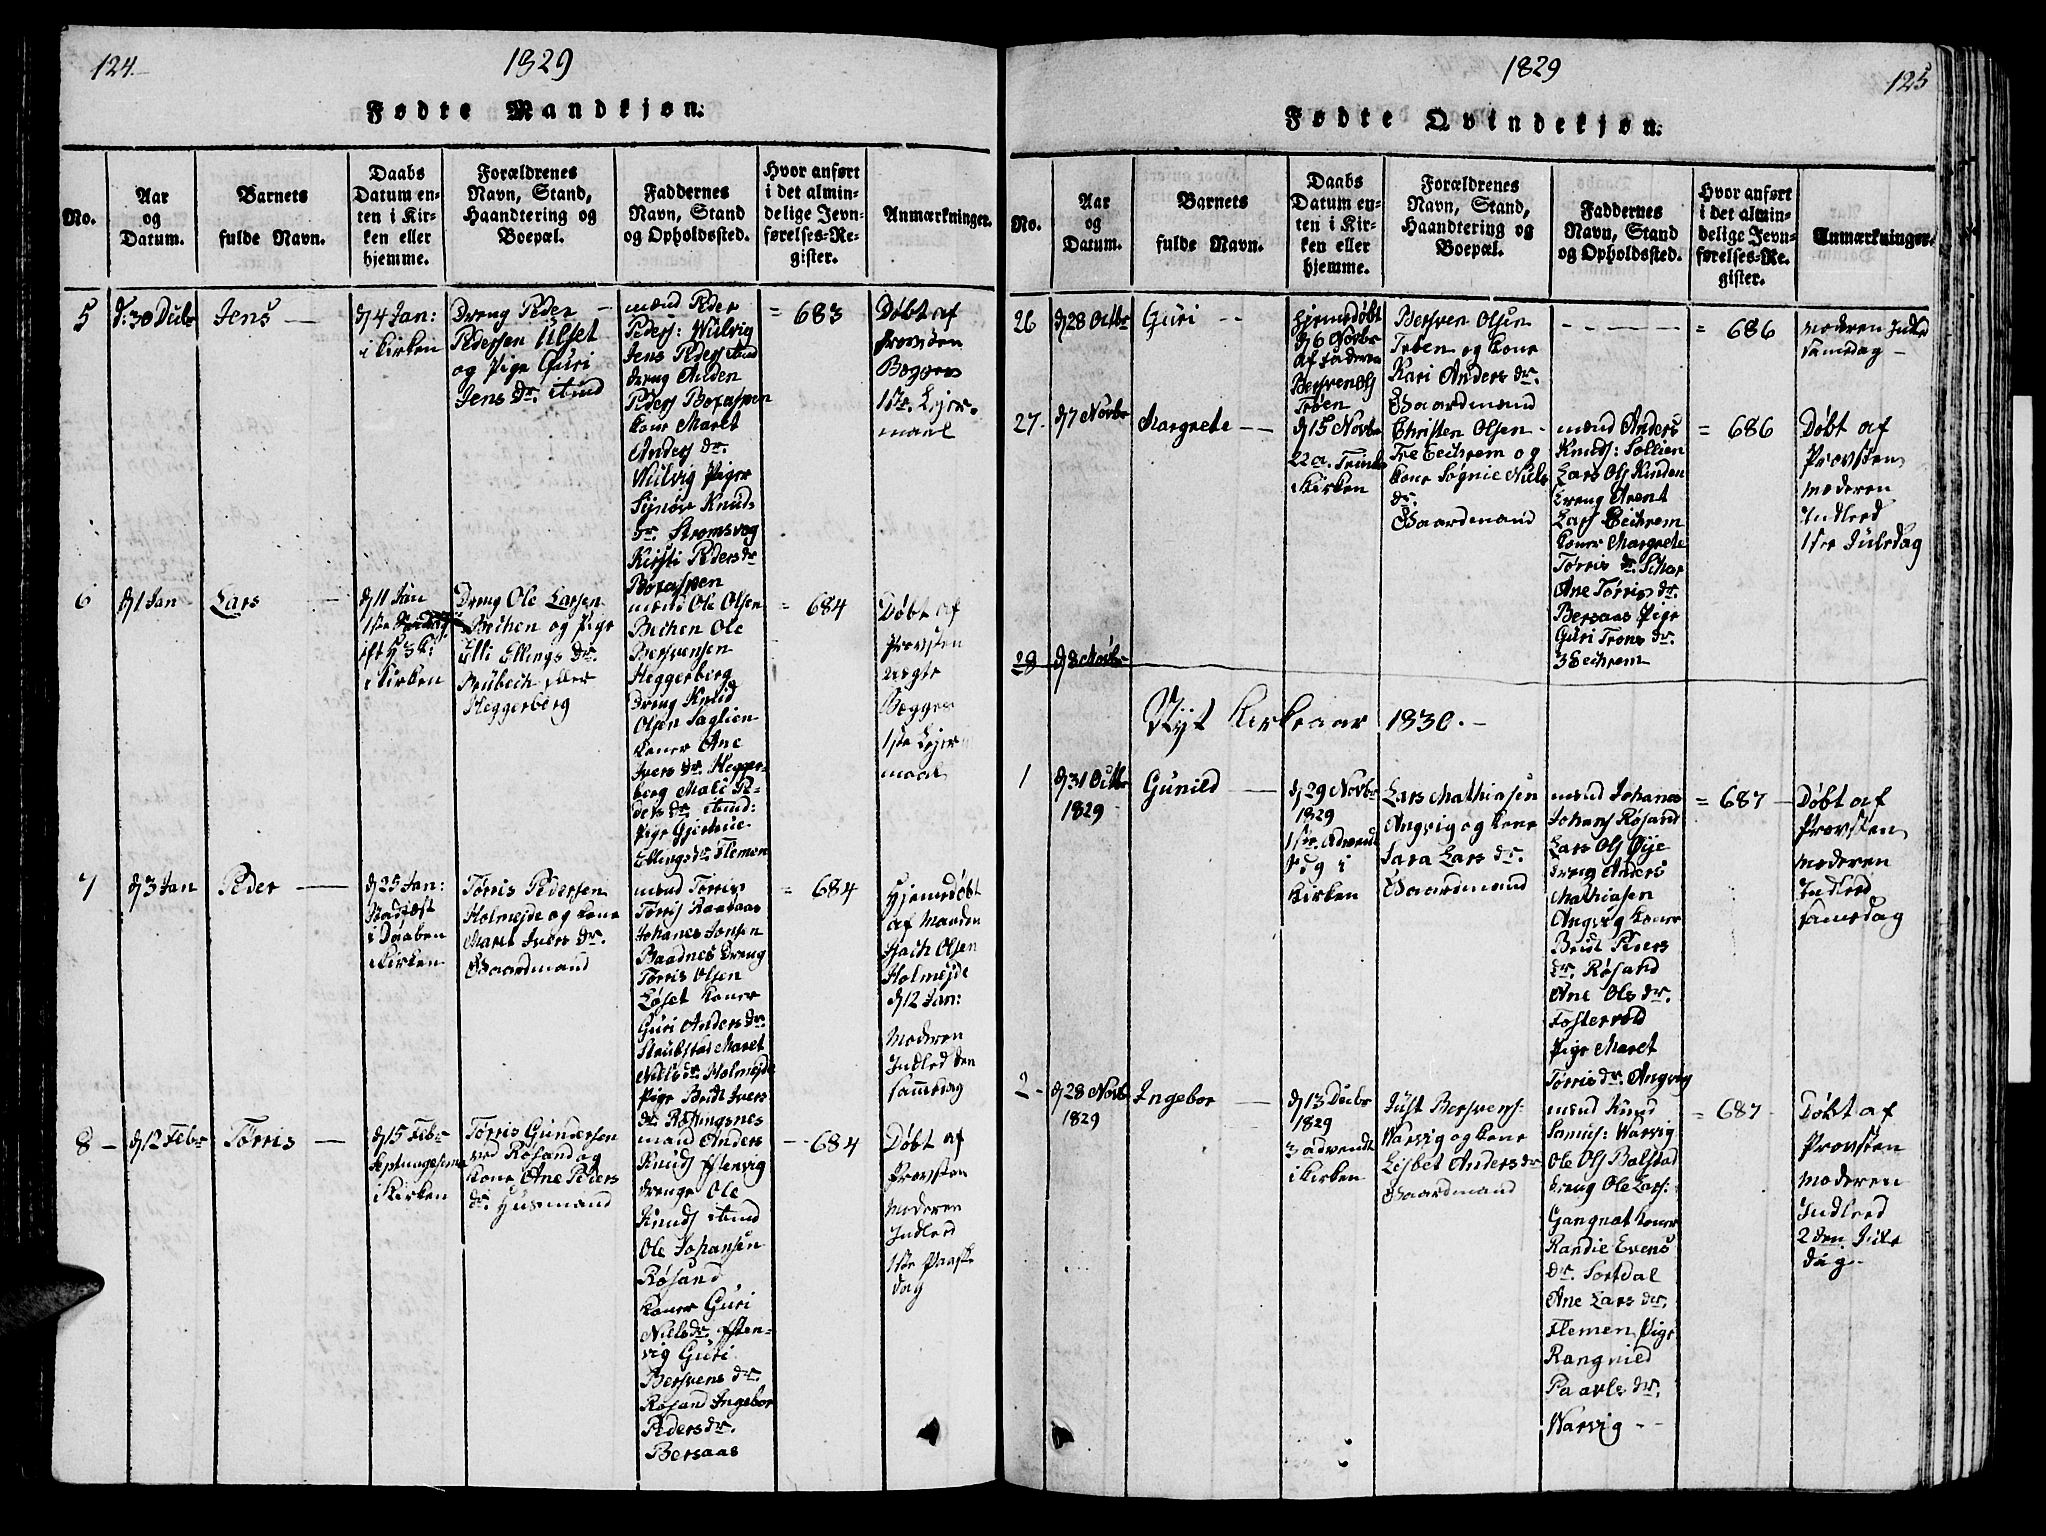 124.
1829
Fødte Mandkjøn.
No.
Aar
og
Datum.
Barnets
fulde Navn.
Daabs
Datum en-
ten i Kir-
ken eller
hjemme.
Forældrenes
Navn, Stand,
Haandtering og
Boepæl.
Faddernes
Navn, Stand
og Opholdssted.
Hvor anført
i det almin-
delige Jevn-
førelses-Re-
gister.
Anmærkninger.
5
d: 30 Decbr
Jens
d 4 Jan:
i Kirken
Dreng Peder
Pedersen Ulset
og Pige Guri
Jens Dr.
mænd Peder
Peders: Wulvig
Jens Peders
dreng Anden
Peders Boraspen
kone Maret
Anders Dr.
Wulvig Piger
Synøve Knuds
dr. Strømsvog
Kirsti Peders dr
Boraspen
= 683
Døbt af
Provsten
Begges
1ste Lejer-
maal
6
d 1 Jan
Lars
d 11 Jan
1ste Søndag
eft H 3 K:
i Kirken
Dreng Ole Larsen
Bechen og Pige
Elli Ellings Dr.
Brubech eller
Heggerberg
mænd Ole Olsen
Bechen Ole
Bersvensen
Heggerberg
Dreng Knud
Olsen Saglien
koner Ane
Ivers Dr. Hegger-
berg Mali Pe-
ders dr
Pige Gjertrue
Ellingsdr Flemen
= 684
Døbt af
Provsten
uægte
Begges
1ste Lejer
maal
7
d 3 Jan
Peder
d 25 Jan:
Stadfæst
i Daaben
i Kirken
Tørris Pedersen
Holmejde og kone
Maret Ivers Dr.
Gaardmand
mænd Tørris
Tørris
Johanes Jonsen
Baadnes Dreng
Tørris Olsen
Løset koner
Guri Anders dr.
Maret
Niels dr. Holmejde
Pige Brit Ivers
dr. Røsingsnes
= 684
Hjemedøbt
af Manden
Olsen
Holmejde
d 12 Jan:
Moderen
Indled den
samedag
8
d 12 Febr
Tørris
d 15 Febr
Septuagesima
i Kirken
Tørris Gundersen
ved Røsand og
kone Ane Peders
dr. Husmand
mænd Anders
Knuds Estenvig
drenge Ole
Knuds
Ole Johansen
Røsand
koner Guri
Nielsdr. Esten-
vig Guri
Bersvens dr.
Røsand Ingebor
Peders dr.
Bersaas
684
Døbt af
Provsten
Moderen
Indled
1ste Paaske
dag
1829
125
Fødte Qvindekjøn.
No.
Aar
og
Datum.
Barnets
fulde Navn.
Daabs
Datum en-
ten i Kir-
ken eller
hjemme.
Forældrenes
Navn, Stand,
Haandtering og
Boepæl.
Faddernes
Navn, Stand
og Opholdssted.
Hvor anført
i det almin-
delige Jevn-
førelses-Re-
gister.
Anmærkninger.
26
d 28 Octbr
Guri
Hjemedøbt
d 6 Novbr
af Faderen
Bersven Ols
Trøen
Bersven Olsen
Trøen og kone
Kari Anders dr.
Gaardmand
= 686
Moderen Indled
samedag
27.
d 7 Novbr
Margrete
d 15 Novbr
22 a. Trinit
i Kirken
Christen Olsen
og
kone Sygnie Niels
dr.
Gaardmand
mænd Anders
Knuds: Sollien
Lars Ols Kinden
dreng Arent
Lars Eechrem
koner Margrete
Tørris dr.
Ane Tørris dr.
Bersaas Pige
Guri Trons dr.
Eechrem
= 686
Døbt af
Provsten
Moderen
Indled
1ste Juledag
28
d 8 Novbr
Nyt Kirkeaar 1830.
1
d 31 Octbr
1829
Gunild
d 29 Novbr
1829
1ste Advend
Søg i
Kirken
Lars Mathiasen
Angvig og kone
Sara Lars dr.
Gaardmand
mænd Johanes
Johans Røsand
Lars Ols Øye
dreng Anders
Mathiasen
Angvig koner
Brit Peders
dr. Røsand
Ane Ols dr.
Fostervold
Pige Maret
Tørris dr. Angvig
= 687
Døbt af
Provsten
Moderen
Indled
samedag
2
d 28 Novb
1829
Ingebor
d 13 Decbr
1829
3 advendt
i Kirken
Just Bersvens:
Warvig og kone
Lisbet Anders dr
Gaardmand
mænd Knud
Samuls: Warvig
Ole Ols Bolstad
dreng Ole Lars:
Gangnat koner
Randie Evens
dr. Sortdal
Ane Lars dr.
Flemen Pige
Rangnild
Paavls dr.
Warvig
= 687
Døbt af
Provsten
Moderen
Indled
2den Jule
dag